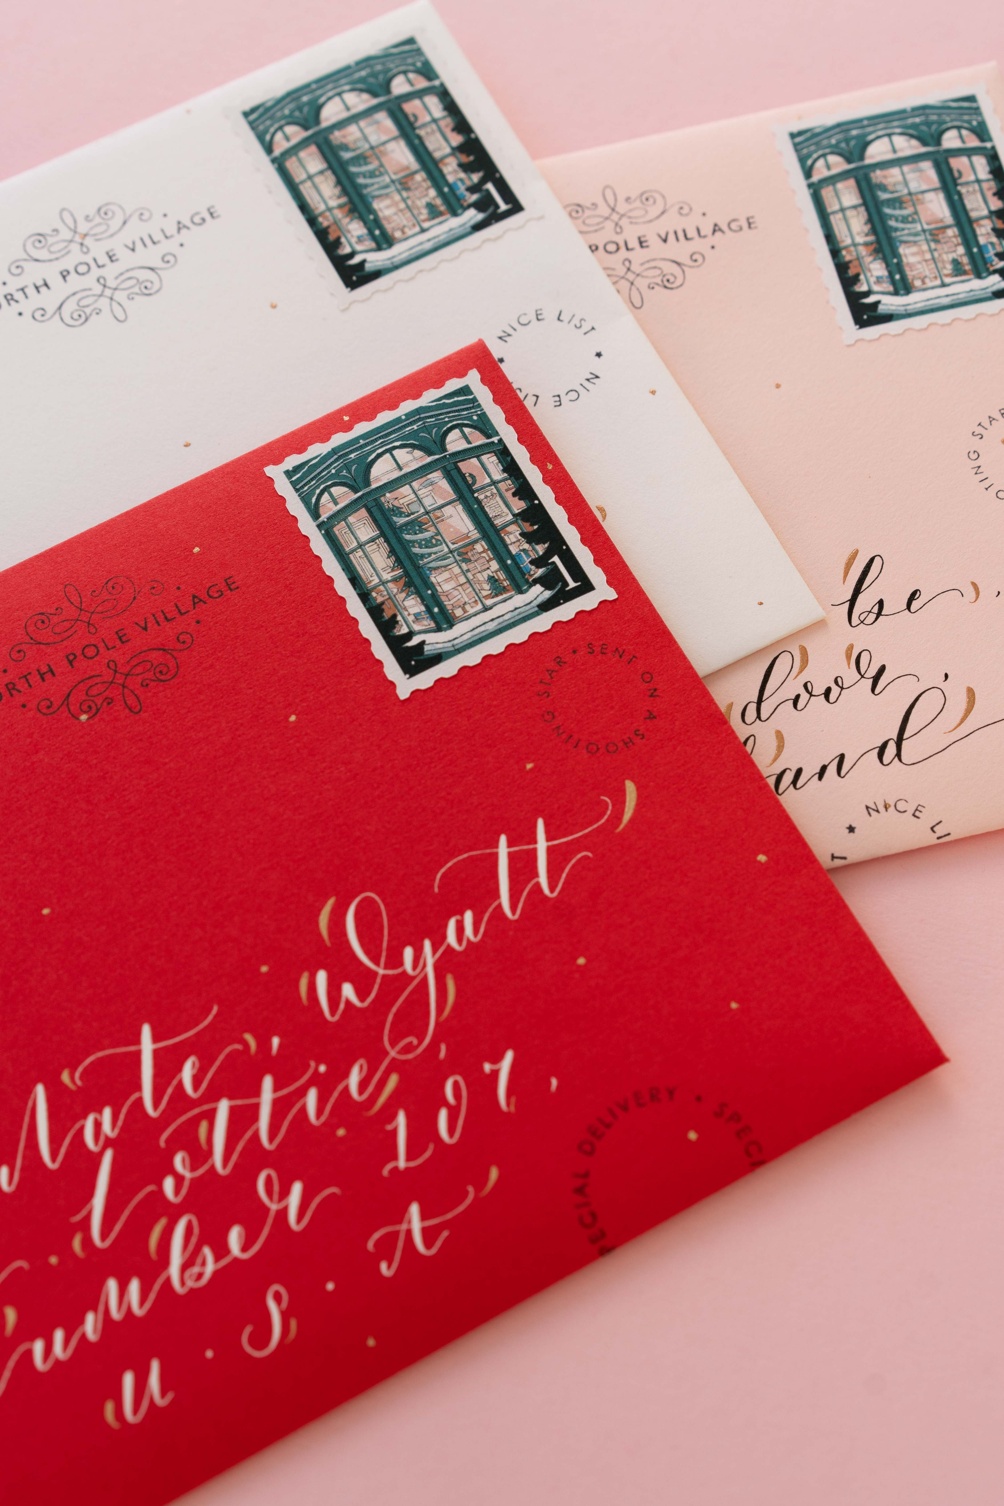 NORTH POLE VILLAGE
1
NICE LIST
NICE LI
POLE VILLAGE
OOTING STAR
be,
door,
and
NICE LI
T
NORTH POLE VILLAGE
1
STAR • SENT ON A SHOOTING
Nate, Wyatt
Lottie,
umber 107,
U.S.A
SPECIAL DELIVERY • SPECIA